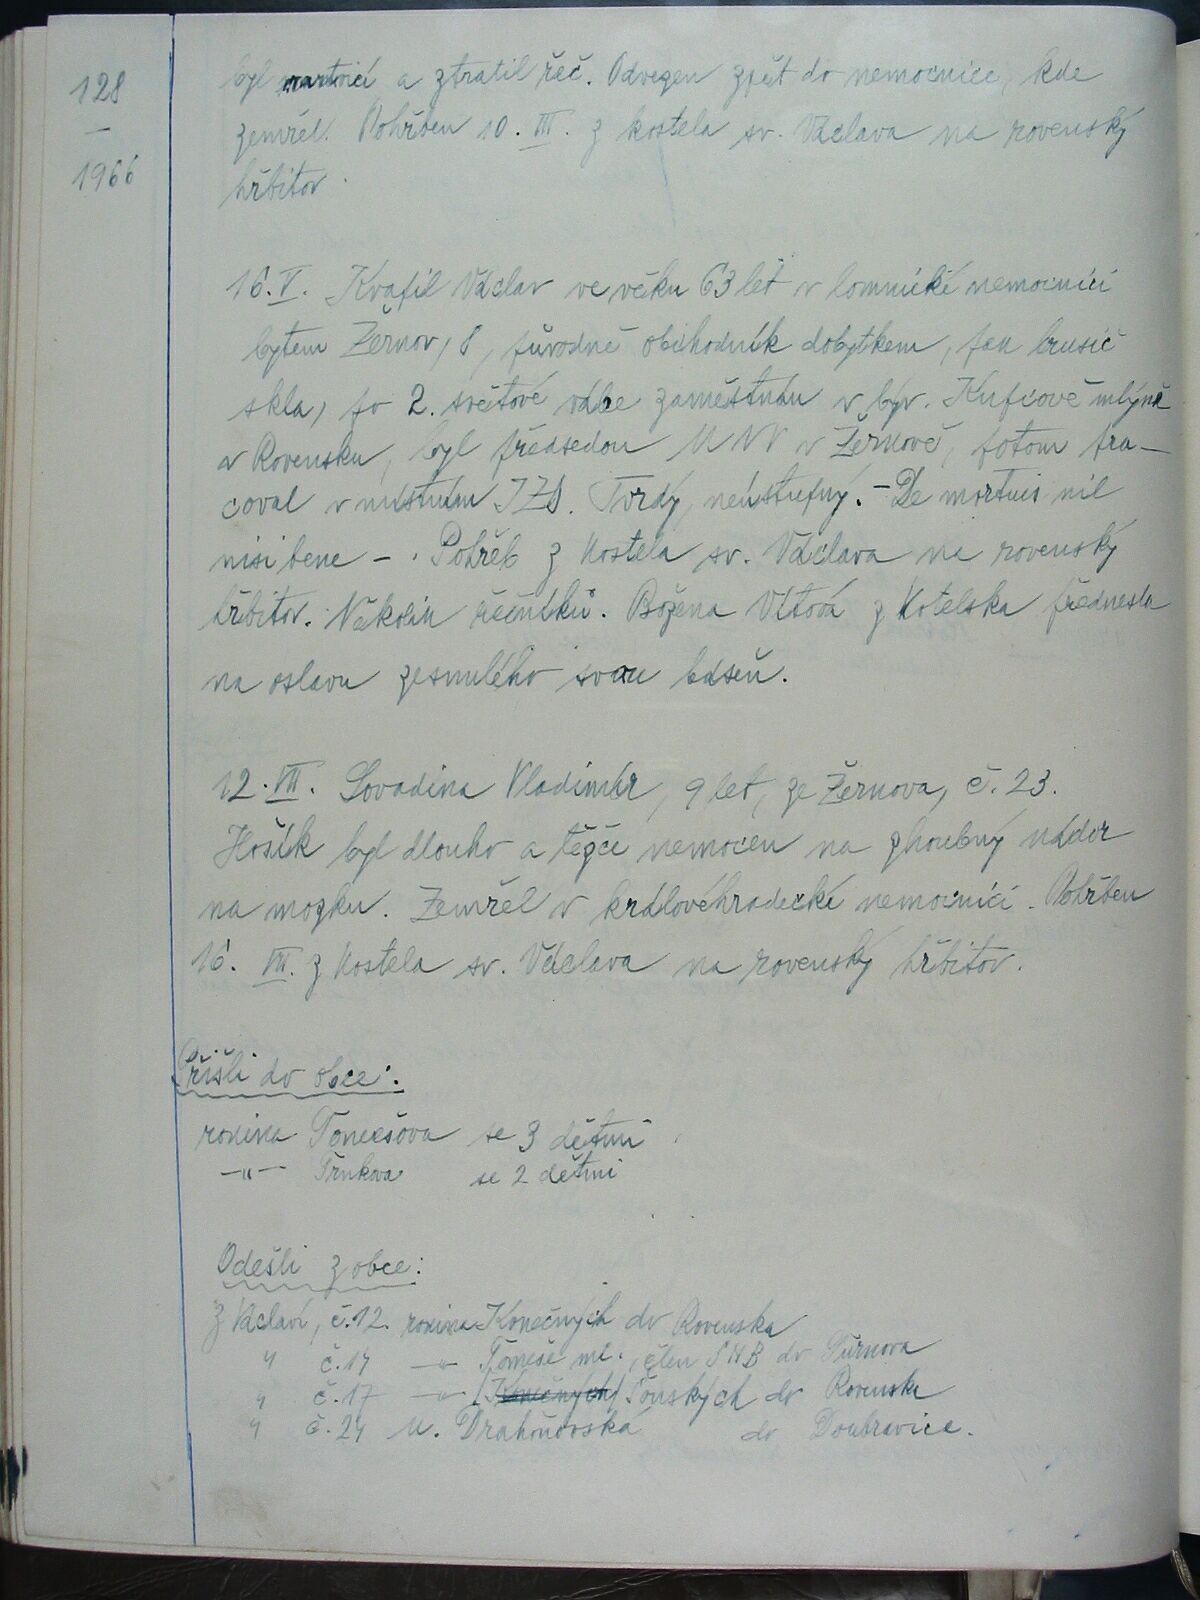 128
—
1966
byl mrtvicí a ztratil řeč. Odvezen zpět do nemocnice, kde
zemřel. Pohřben 10. III. z kostela sv. Václava na rovenský
hřbitov.
16. V. Kvapil Václav ve věku 63 let v lomnické nemocnici
bytem Žernov, 8, původně obchodník dobytkem, pak brusič
skla, po 2. světové válce zaměstnán v býv. Kupcově mlýně
v Rovensku, byl předsedou MNV v Žernově, potom pra-
coval v místním JZD. Tvrdý, neústupný. – De mortuis nil
nisi bene – . Pohřeb z kostela sv. Václava na rovenský
hřbitov. Několik řečníků. Božena Vltová z Kotelska přednesla
na oslavu zesnulého svou báseň.
12. VII. Lovadina Vladimír, 9 let, ze Žernova, č. 23.
Hošík byl dlouho a těžce nemocen na zhoubný nádor
na mozku. Zemřel v královéhradecké nemocnici. Pohřben
16. VII. z kostela sv. Václava na rovenský hřbitov.
Přišli do obce:
rodina Tomešova se 3 dětmi
—"— Trnkova se 2 dětmi
Odešli z obce:
Z Václaví, č. 12. rodina Konečných do Rovenska
" č. 14 —"— Tomeše ml., člen SNB do Turnova
" č. 17 —"— (Konečných) Tonských do Rovenska
" č. 24 M. Drahoňovská do Doubravice.